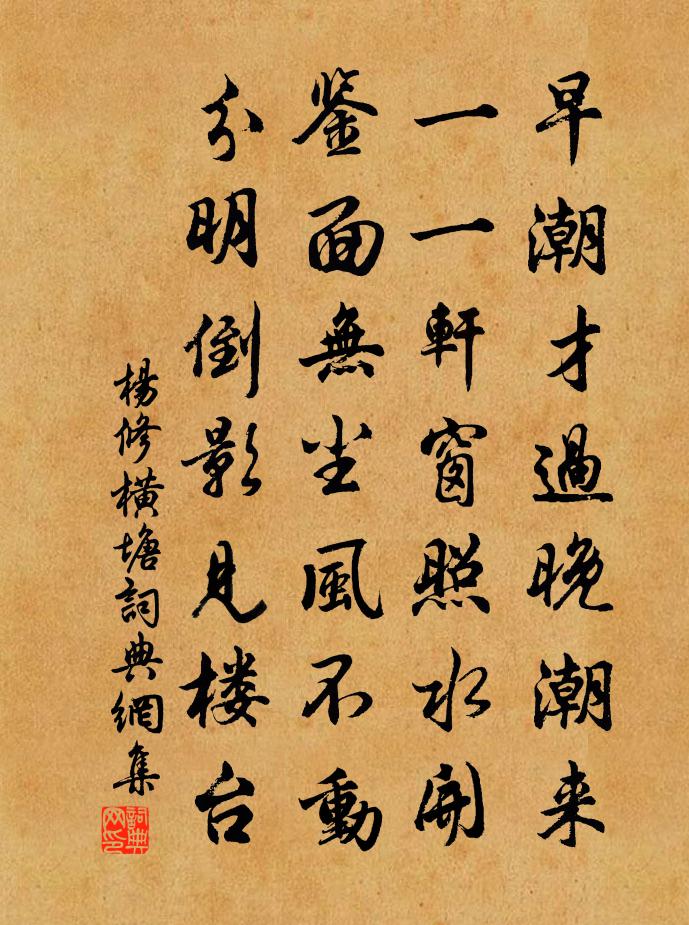 早潮才過晚潮来
一一軒窗照水開
鉴面無尘風不動
分明倒影見楼台
楊修橫塘詞典網集
詞典网印